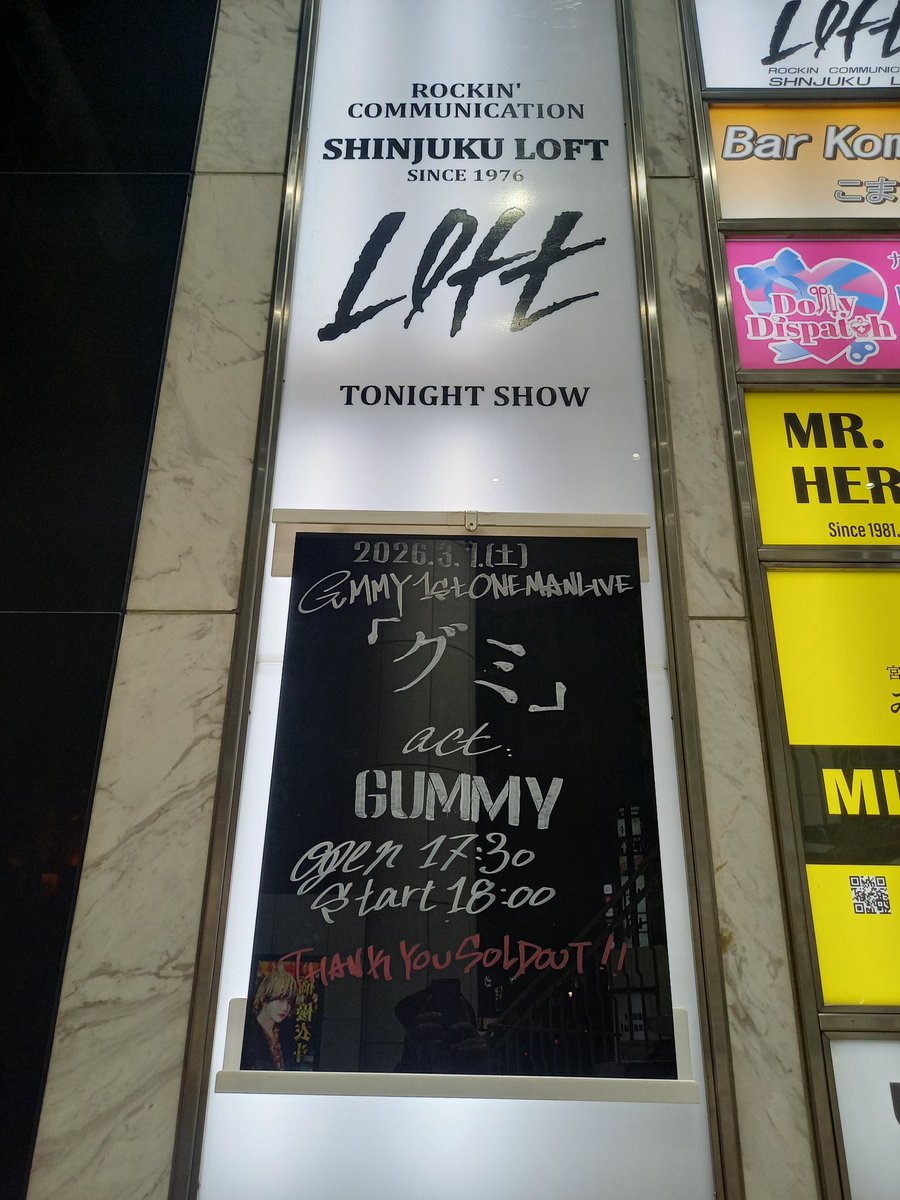 ROCKIN'
COMMUNICATION
SHINJUKU LOFT
SINCE 1976
LOFT
TONIGHT SHOW
2026.3.7.(土)
GUMMY 1st ONE MAN LIVE
「グミ」
act.
GUMMY
open 17:30
Start 18:00
THANK YOU SOLD OUT!!
LOFT
ROCKIN COMMUNIC
Bar Kom
こま
Dolly
Dispatch
MR.
HER
Since 1981.
MI